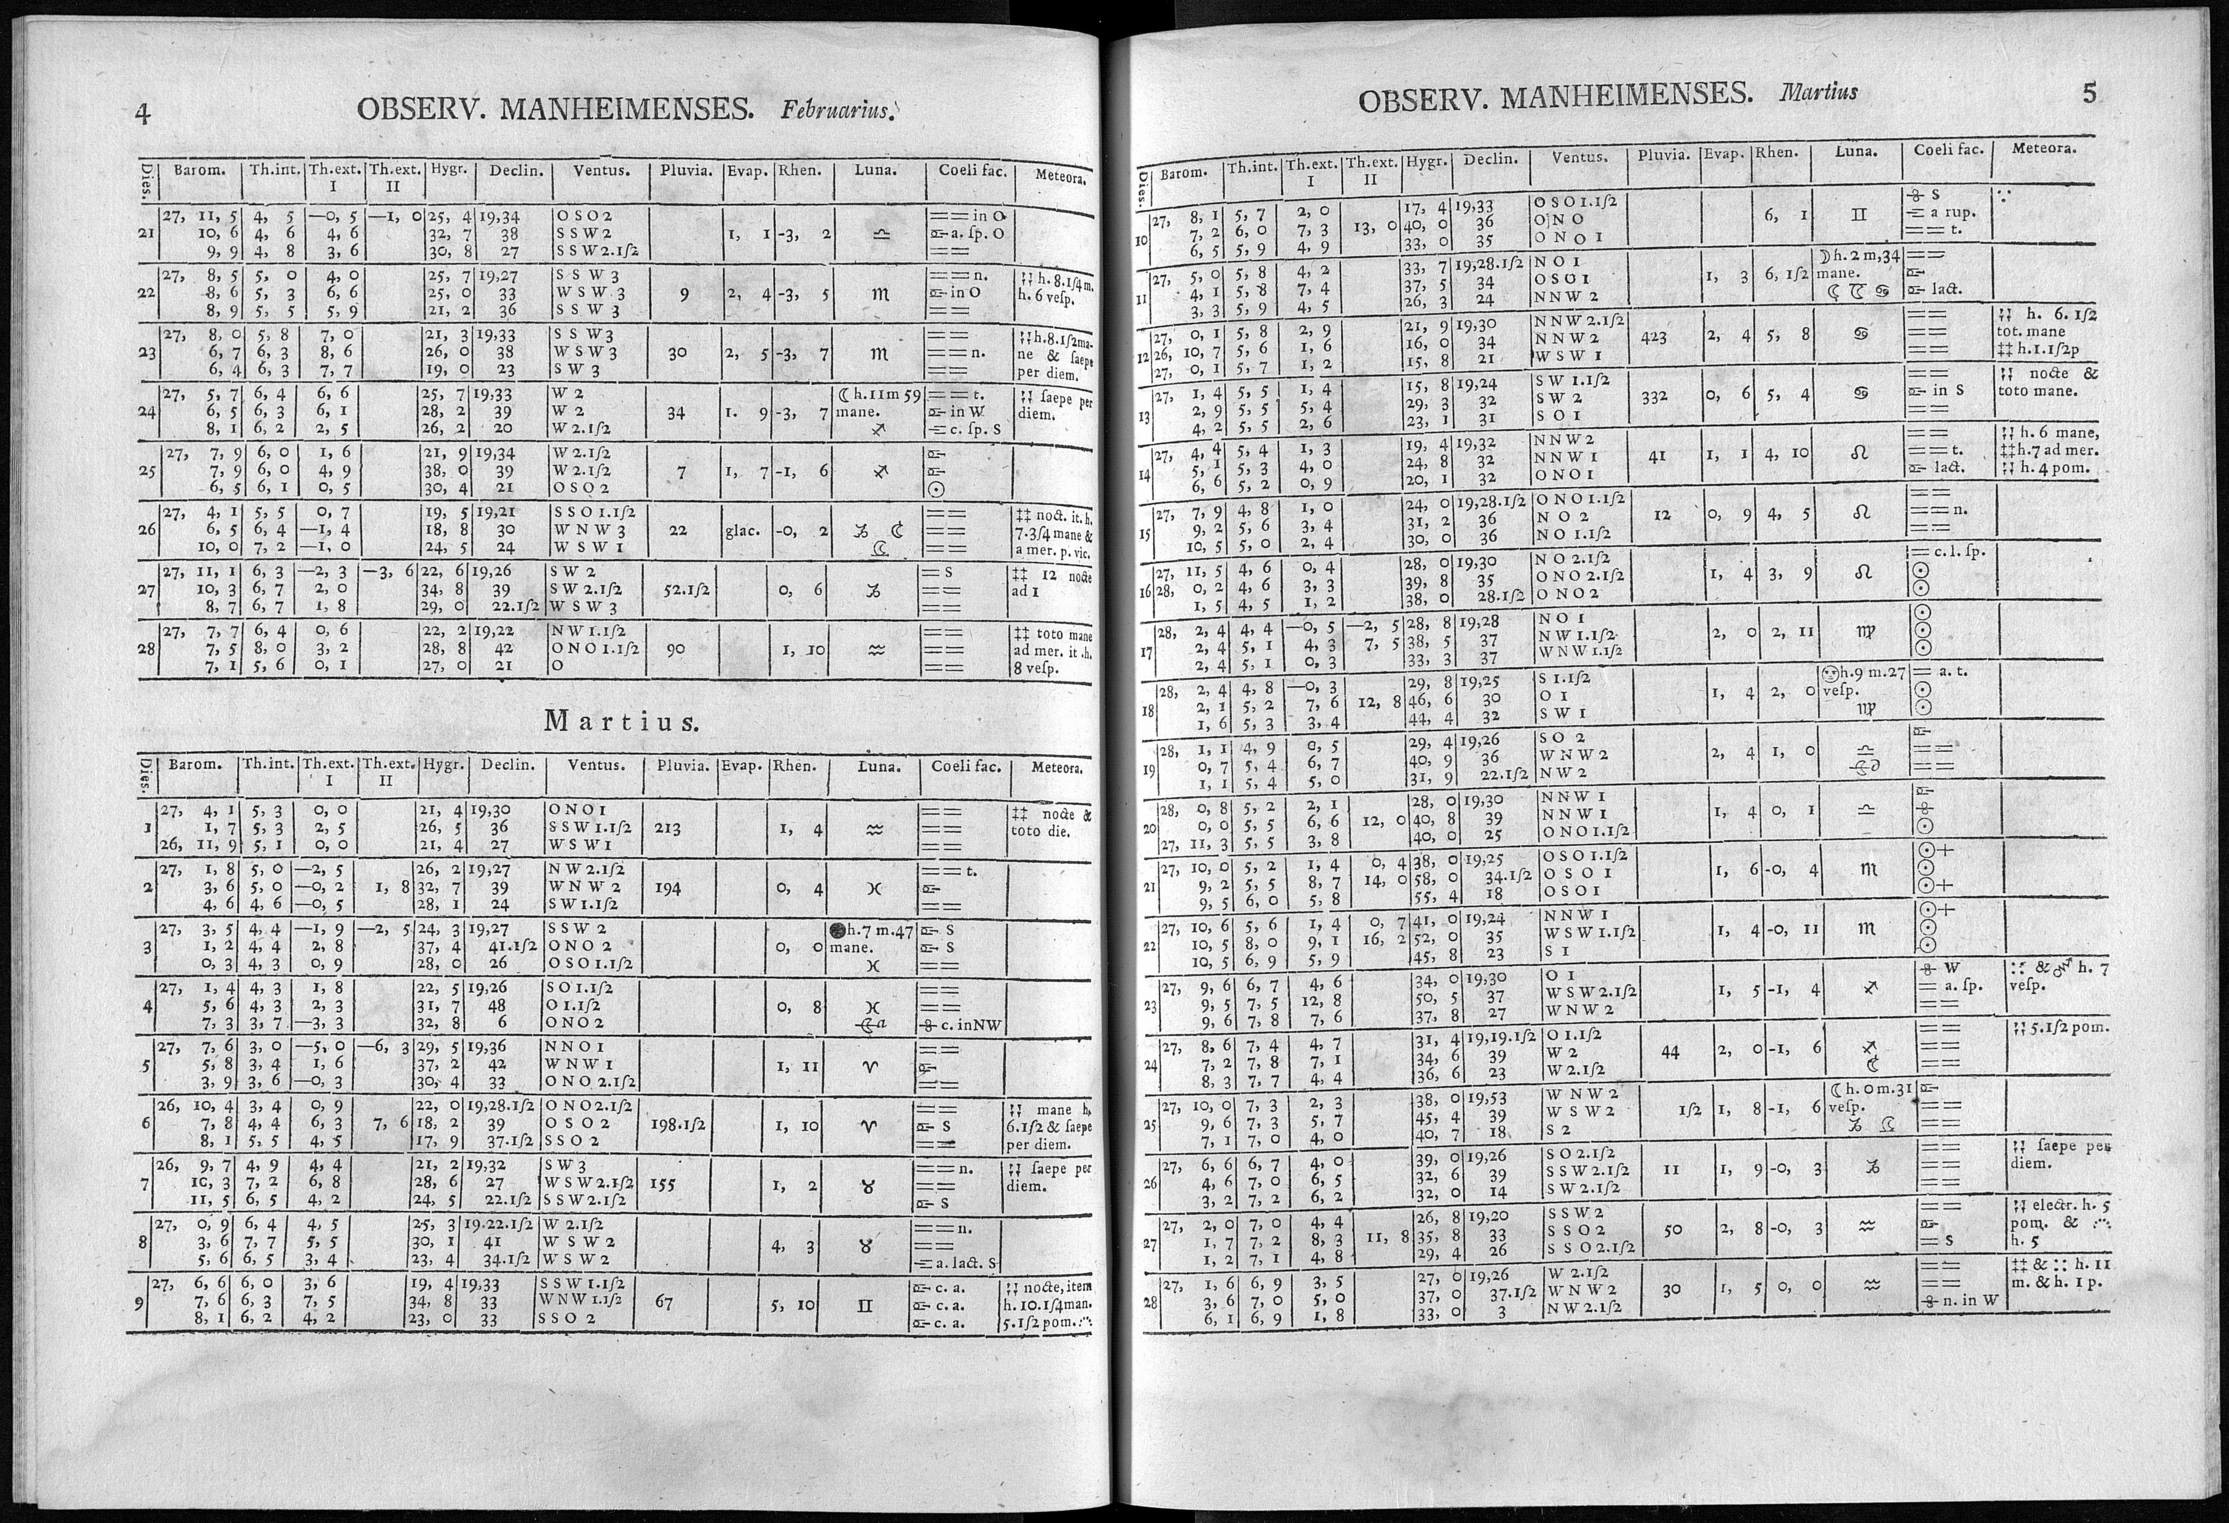 4 OBSERV. MANHEIMENSES. Februarius.
Dies. Barom. Th.int. Th.ext. I Th.ext. II Hygr. Declin. Ventus. Pluvia. Evap. Rhen. Luna. Coeli fac. Meteora.
27, 11, 5 4, 5 —0, 5 —1, 0 25, 4 19,34 O S O 2 == in O
21 10, 6 4, 6 4, 6 32, 7 38 S S W 2 1, 1 -3, 2 ♎ a. ſp. O
9, 9 4, 8 3, 6 30, 8 27 S S W 2.1ſ2 ==
27, 8, 5 5, 0 4, 0 25, 7 19,27 S S W 3 == n. h. 8.1ſ4 m.
22 8, 6 5, 3 6, 6 25, 0 33 W S W 3 9 2, 4 -3, 5 ♏ in O h. 6 veſp.
8, 9 5, 5 5, 9 21, 2 36 S S W 3 ==
27, 8, 0 5, 8 7, 0 21, 3 19,33 S S W 3 == h.8.1ſ2 ma-
23 6, 7 6, 3 8, 6 26, 0 38 W S W 3 30 2, 5 -3, 7 ♏ == n. ne & ſaepe
6, 4 6, 3 7, 7 19, 0 23 S W 3 == per diem.
27, 5, 7 6, 4 6, 6 25, 7 19,33 W 2 ☾ h. 11 m 59 == t. ſaepe per
24 6, 5 6, 3 6, 1 28, 2 39 W 2 34 1. 9 -3, 7 mane. in W diem.
8, 1 6, 2 2, 5 26, 2 20 W 2.1ſ2 ♐ c. ſp. S
27, 7, 9 6, 0 1, 6 21, 9 19,34 W 2.1ſ2
25 7, 9 6, 0 4, 9 38, 0 39 W 2.1ſ2 7 1, 7 -1, 6 ♐
6, 5 6, 1 0, 5 30, 4 21 O S O 2 ☉
27, 4, 1 5, 5 0, 7 19, 5 19,21 S S O 1.1ſ2 == ‡‡ noct. it. h.
26 6, 5 6, 4 —1, 4 18, 8 30 W N W 3 22 glac. -0, 2 ♑ ☾ == 7.3ſ4 mane &
10, 0 7, 2 —1, 0 24, 5 24 W S W 1 == a mer. p. vic.
27, 11, 1 6, 3 —2, 3 —3, 6 22, 6 19,26 S W 2 = S ‡‡ 12 nocte
27 10, 3 6, 7 2, 0 34, 8 39 S W 2.1ſ2 52.1ſ2 0, 6 ♑ == ad 1
8, 7 6, 7 1, 8 29, 0 22.1ſ2 W S W 3 ==
27, 7, 7 6, 4 0, 6 22, 2 19,22 N W 1.1ſ2 == ‡‡ toto mane
28 7, 5 8, 0 3, 2 28, 8 42 O N O 1.1ſ2 90 1, 10 ♒ == ad mer. it .h.
7, 1 5, 6 0, 1 27, 0 21 O == 8 veſp.
Martius.
Dies. Barom. Th.int. Th.ext. I Th.ext. II Hygr. Declin. Ventus. Pluvia. Evap. Rhen. Luna. Coeli fac. Meteora.
27, 4, 1 5, 3 0, 0 21, 4 19,30 O N O 1 == ‡‡ nocte &
1 1, 7 5, 3 2, 5 26, 5 36 S S W 1.1ſ2 213 1, 4 ♒ == toto die.
26, 11, 9 5, 1 0, 0 21, 4 27 W S W 1 ==
27, 1, 8 5, 0 —2, 5 26, 2 19,27 N W 2.1ſ2 == t.
2 3, 6 5, 0 —0, 2 1, 8 32, 7 39 W N W 2 194 0, 4 ♓
4, 6 4, 6 —0, 5 28, 1 24 S W 1.1ſ2 ==
27, 3, 5 4, 4 —1, 9 —2, 5 24, 3 19,27 S S W 2 ● h. 7 m. 47 S
3 1, 2 4, 4 2, 8 37, 4 41.1ſ2 O N O 2 0, 0 mane. S
0, 3 4, 3 0, 9 28, 0 26 O S O 1.1ſ2 ♓ ==
27, 1, 4 4, 3 1, 8 22, 5 19,26 S O 1.1ſ2 ==
4 5, 6 4, 3 2, 3 31, 7 48 O 1.1ſ2 0, 8 ♓ ==
7, 3 3, 7 —3, 3 32, 8 6 O N O 2 a c. in NW
27, 7, 6 3, 0 —5, 0 —6, 3 29, 5 19,36 N N O 1 ==
5 5, 8 3, 4 1, 6 37, 2 42 W N W 1 1, 11 ♈
3, 9 3, 6 —0, 3 30, 4 33 O N O 2.1ſ2 ==
26, 10, 4 3, 4 0, 9 22, 0 19,28.1ſ2 O N O 2.1ſ2 == mane h.
6 7, 8 4, 4 6, 3 7, 6 18, 2 39 O S O 2 198.1ſ2 1, 10 ♈ S 6.1ſ2 & ſaepe
8, 1 5, 5 4, 5 17, 9 37.1ſ2 S S O 2 == per diem.
26, 9, 7 4, 9 4, 4 21, 2 19,32 S W 3 == n. ſaepe per
7 10, 3 7, 2 6, 8 28, 6 27 W S W 2.1ſ2 155 1, 2 ♉ == diem.
11, 5 6, 5 4, 2 24, 5 22.1ſ2 S S W 2.1ſ2 S
27, 0, 9 6, 4 4, 5 25, 3 19.22.1ſ2 W 2.1ſ2 == n.
8 3, 6 7, 7 5, 5 30, 1 41 W S W 2 4, 3 ♉ ==
5, 6 6, 5 3, 4 23, 4 34.1ſ2 W S W 2 a. lact. S
27, 6, 6 6, 0 3, 6 19, 4 19,33 S S W 1.1ſ2 c. a. nocte, item
9 7, 6 6, 3 7, 5 34, 8 33 W N W 1.1ſ2 67 5, 10 ♊ c. a. h. 10.1ſ4 man.
8, 1 6, 2 4, 2 23, 0 33 S S O 2 c. a. 5.1ſ2 pom.
OBSERV. MANHEIMENSES. Martius 5
Dies. Barom. Th.int. Th.ext. I Th.ext. II Hygr. Declin. Ventus. Pluvia. Evap. Rhen. Luna. Coeli fac. Meteora.
27, 8, 1 5, 7 2, 0 17, 4 19,33 O S O 1.1ſ2 S
10 7, 2 6, 0 7, 3 13, 0 40, 0 36 O N O 6, 1 ♊ a rup.
6, 5 5, 9 4, 9 33, 0 35 O N O 1 == t.
27, 5, 0 5, 8 4, 2 33, 7 19,28.1ſ2 N O 1 ☽ h. 2 m, 34 ==
11 4, 1 5, 8 7, 4 37, 5 34 O S O 1 1, 3 6, 1ſ2 mane.
3, 3 5, 9 4, 5 26, 3 24 N N W 2 ♋ lact.
27, 0, 1 5, 8 2, 9 21, 9 19,30 N N W 2.1ſ2 == h. 6. 1ſ2
12 26, 10, 7 5, 6 1, 6 16, 0 34 N N W 2 423 2, 4 5, 8 ♋ == tot. mane
27, 0, 1 5, 7 1, 2 15, 8 21 W S W 1 == ‡‡ h.1.1ſ2 p
27, 1, 4 5, 5 1, 4 15, 8 19,24 S W 1.1ſ2 == nocte &
13 2, 9 5, 5 5, 4 29, 3 32 S W 2 332 0, 6 5, 4 ♋ in S toto mane.
4, 2 5, 5 2, 6 23, 1 31 S O 1 ==
27, 4, 4 5, 4 1, 3 19, 4 19,32 N N W 2 == h. 6 mane,
14 5, 1 5, 3 4, 0 24, 8 32 N N W 1 41 1, 1 4, 10 ♌ == t. ‡‡ h. 7 ad mer.
6, 6 5, 2 0, 9 20, 1 32 O N O 1 lact. h. 4 pom.
27, 7, 9 4, 8 1, 0 24, 0 19,28.1ſ2 O N O 1.1ſ2 ==
15 9, 2 5, 6 3, 4 31, 2 36 N O 2 12 0, 9 4, 5 ♌ == n.
10, 5 5, 0 2, 4 30, 0 36 N O 1.1ſ2 ==
27, 11, 5 4, 6 0, 4 28, 0 19,30 N O 2.1ſ2 = c. l. ſp.
16 28, 0, 2 4, 6 3, 3 39, 8 35 O N O 2.1ſ2 1, 4 3, 9 ♌ ☉
1, 5 4, 5 1, 2 38, 0 28.1ſ2 O N O 2 ☉
28, 2, 4 4, 4 —0, 5 —2, 5 28, 8 19,28 N O 1 ☉
17 2, 4 5, 1 4, 3 7, 5 38, 5 37 N W 1.1ſ2 2, 0 2, 11 ♍ ☉
2, 4 5, 1 0, 3 33, 3 37 W N W 1.1ſ2 ☉
28, 2, 4 4, 8 —0, 3 29, 8 19,25 S 1.1ſ2 h. 9 m. 27 = a. t.
18 2, 1 5, 2 7, 6 12, 8 46, 6 30 O 1 1, 4 2, 0 veſp. ☉
1, 6 5, 3 3, 4 44, 4 32 S W 1 ♍ ☉
28, 1, 1 4, 9 0, 5 29, 4 19,26 S O 2
19 0, 7 5, 4 6, 7 40, 9 36 W N W 2 2, 4 1, 0 ♎ ==
1, 1 5, 4 5, 0 31, 9 22.1ſ2 N W 2 ==
28, 0, 8 5, 2 2, 1 28, 0 19,30 N N W 1
20 0, 0 5, 5 6, 6 12, 0 40, 8 39 N N W 1 1, 4 0, 1 ♎
27, 11, 3 5, 5 3, 8 40, 0 25 O N O 1.1ſ2 ☉
27, 10, 0 5, 2 1, 4 0, 4 38, 0 19,25 O S O 1.1ſ2 ☉+
21 9, 2 5, 5 8, 7 14, 0 58, 0 34.1ſ2 O S O 1 1, 6 -0, 4 ♏ ☉
9, 5 6, 0 5, 8 55, 4 18 O S O 1 ☉+
27, 10, 6 5, 6 1, 4 0, 7 41, 0 19,24 N N W 1 ☉+
22 10, 5 8, 0 9, 1 16, 2 52, 0 35 W S W 1.1ſ2 1, 4 -0, 11 ♏ ☉
10, 5 6, 9 5, 9 45, 8 23 S 1 ☉
27, 9, 6 6, 7 4, 6 34, 0 19,30 O 1 W & h. 7
23 9, 5 7, 5 12, 8 50, 5 37 W S W 2.1ſ2 1, 5 -1, 4 ♐ = a. ſp. veſp.
9, 6 7, 8 7, 6 37, 8 27 W N W 2 ==
27, 8, 6 7, 4 4, 7 31, 4 19,19.1ſ2 O 1.1ſ2 == 5.1ſ2 pom.
24 7, 2 7, 8 7, 1 34, 6 39 W 2 44 2, 0 -1, 6 ♐ ==
8, 3 7, 7 4, 4 36, 6 23 W 2.1ſ2 ☾ ==
27, 10, 0 7, 3 2, 3 38, 0 19,53 W N W 2 ☾ h. 0 m. 31
25 9, 6 7, 3 5, 7 45, 4 39 W S W 2 1ſ2 1, 8 -1, 6 veſp. ==
7, 1 7, 0 4, 0 40, 7 18 S 2 ♑ ==
27, 6, 6 6, 7 4, 0 39, 0 19,26 S O 2.1ſ2 == ſaepe per
26 4, 6 7, 0 6, 5 32, 6 39 S S W 2.1ſ2 11 1, 9 -0, 3 ♑ == diem.
3, 2 7, 2 6, 2 32, 0 14 S W 2.1ſ2 ==
27, 2, 0 7, 0 4, 4 26, 8 19,20 S S W 2 == electr. h. 5
27 1, 7 7, 2 8, 3 11, 8 35, 8 33 S S O 2 50 2, 8 -0, 3 ♒ pom. &
1, 2 7, 1 4, 8 29, 4 26 S S O 2.1ſ2 = S h. 5
27, 1, 6 6, 9 3, 5 27, 0 19,26 W 2.1ſ2 == ‡‡ & :: h. 11
28 3, 6 7, 0 5, 0 37, 0 37.1ſ2 W N W 2 30 1, 5 0, 0 ♒ == m. & h. 1 p.
6, 1 6, 9 1, 8 33, 0 3 N W 2.1ſ2 n. in W